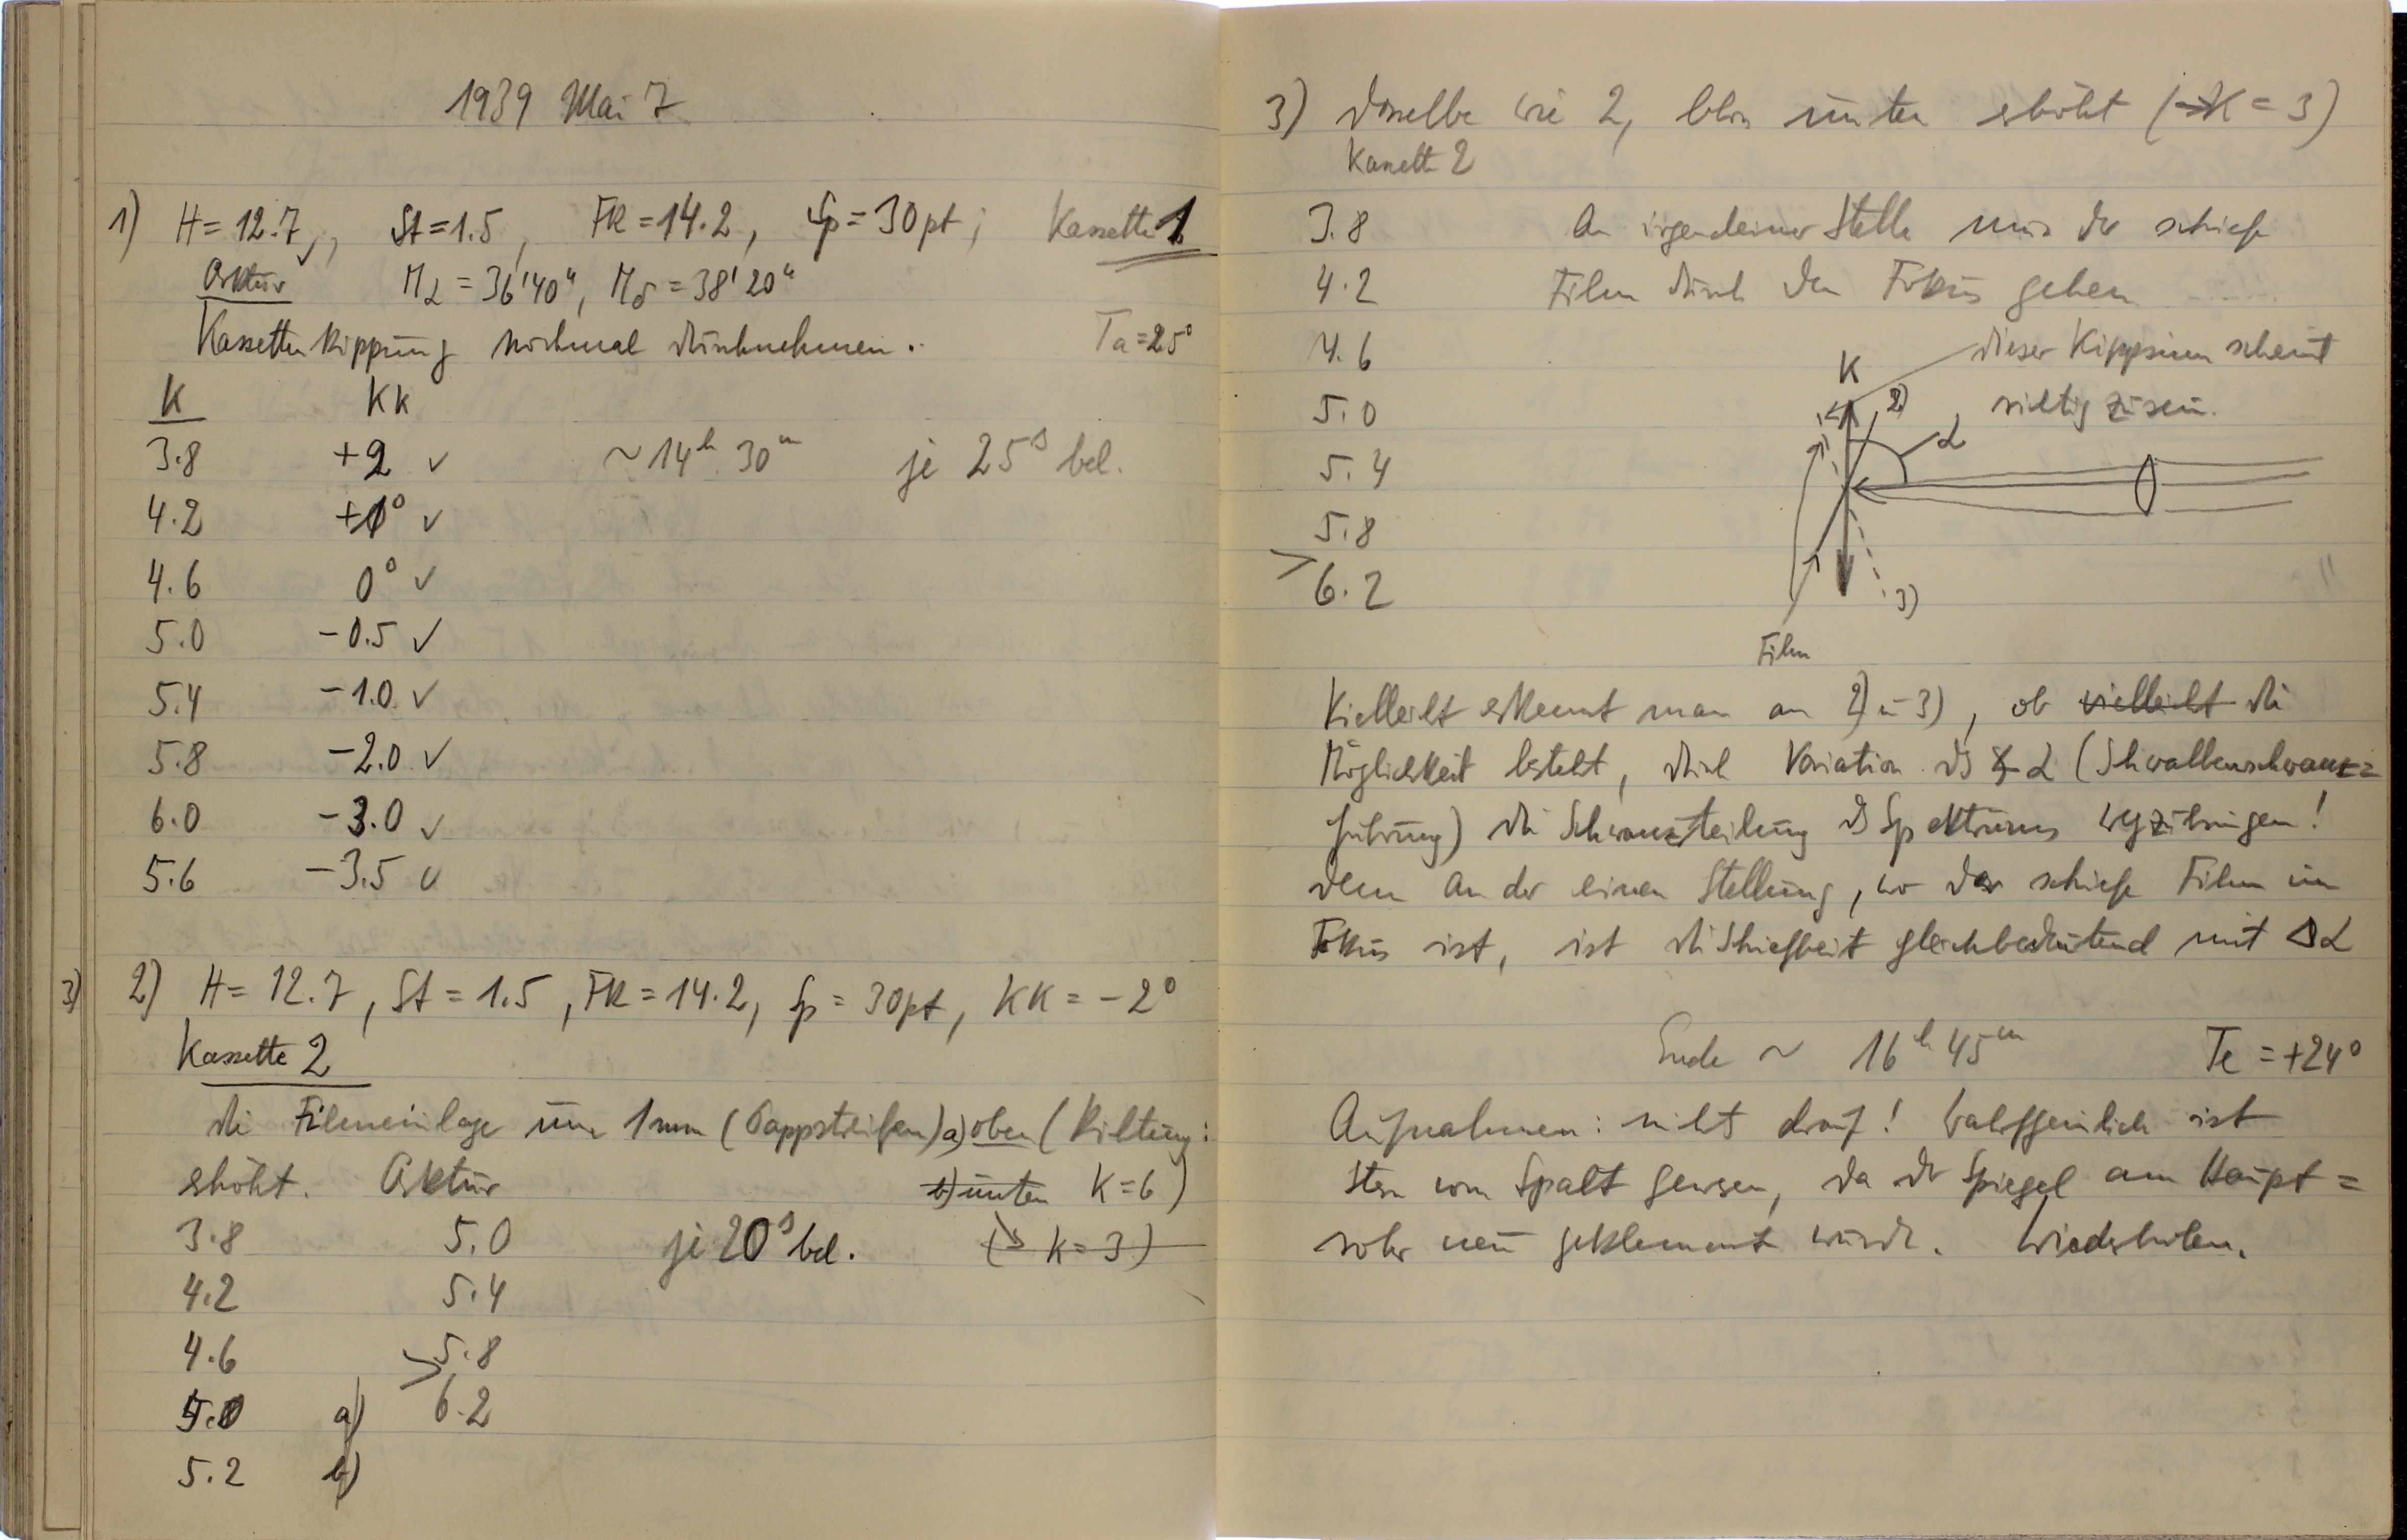 1939 Mai 7
1) H = 12.7, St = 1.5, FR = 14.2, Sp = 30pt; Kassette 1
Arktur Mα = 36'40", Mδ = 38'20"
Kassettenkippung nochmal durchnehmen. Ta = 25°
K KK
3.8 +2 ✓ ~14h 30m je 25s bel.
4.2 +1° ✓
4.6 0° ✓
5.0 -0.5 ✓
5.4 -1.0 ✓
5.8 -2.0 ✓
6.0 -3.0 ✓
5.6 -3.5 ✓
3) 2) H = 12.7, St = 1.5, FR = 14.2, Sp = 30pt, KK = -2°
Kassette 2
die Filmeinlage um 1mm (Pappstreifen) a) oben (Richtung:
erhöht. Arktur b) unten K = 6)
3.8 5.0 je 20s bel. (↘ K = 3)
4.2 5.4
4.6 5.8
5.0 a) > 6.2
5.2 b)
3) dasselbe wie 2, bloss unten erhöht (→K = 3)
Kassette 2
3.8 An irgendeiner Stelle muss der schiefe
4.2 Film durch den Fokus gehen
4.6 K dieser Kippsinn scheint
5.0 2) α richtig zu sein.
5.4
5.8
> 6.2 3)
Film
Vielleicht erkennt man an 2) u 3), ob vielleicht die
Möglichkeit besteht, durch Variation des ∢ α (Schwalbenschwanz=
führung) die Schwanzteilung des Spektrums wegzubringen!
denn an der einen Stellung, wo der schiefe Film im
Fokus ist, ist die Schiefheit gleichbedeutend mit Δα
Ende ~ 16h 45m Te = +24°
Aufnahmen: nichts drauf! Wahrscheinlich ist
Stern vom Spalt gewesen, da der Spiegel am Haupt=
rohr neu geklemmt wurde. Wiederholen.